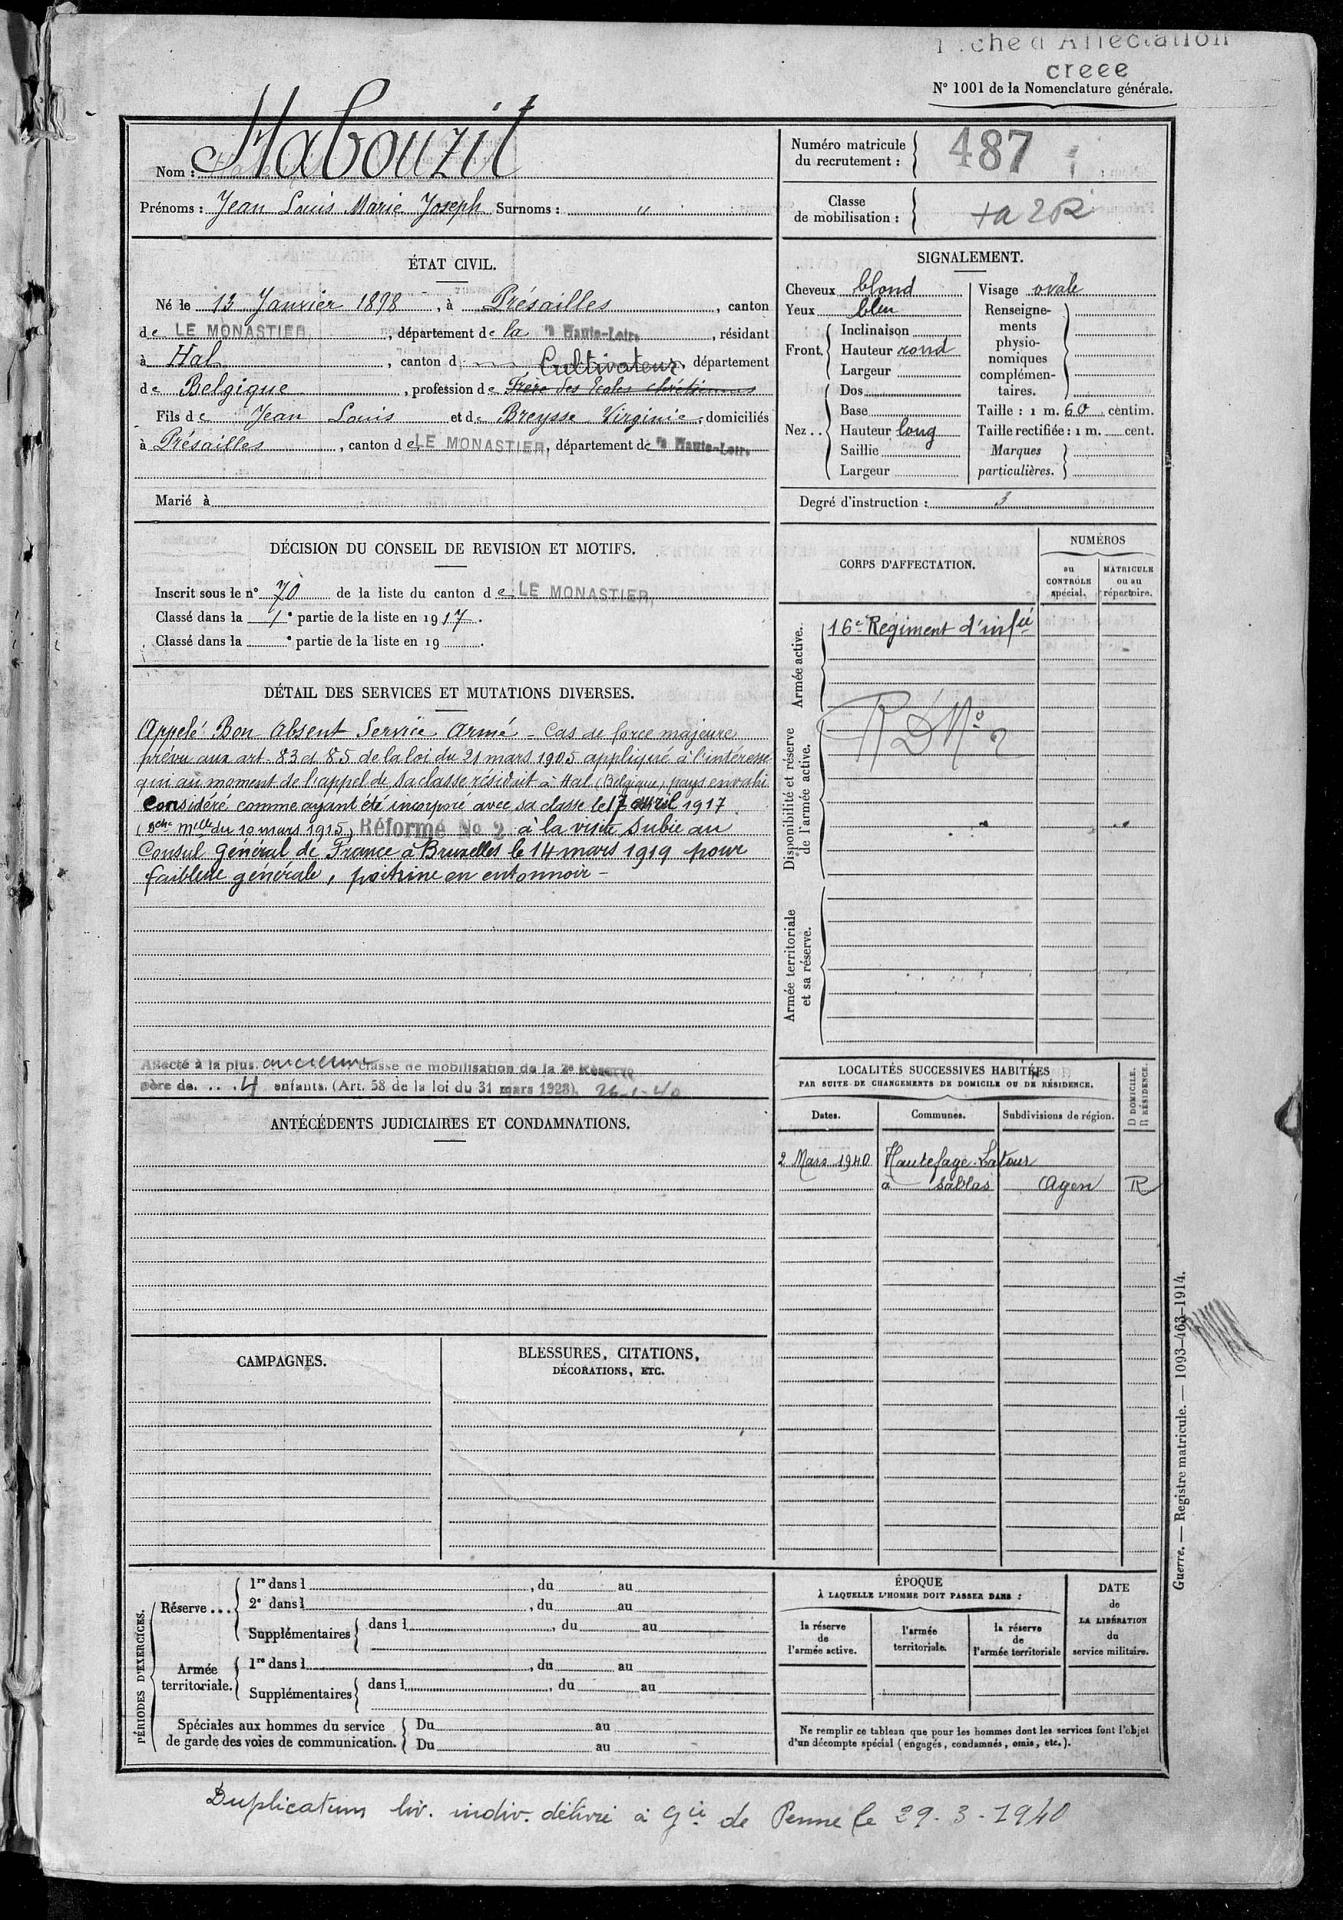 Fiche d'Affectation
créée
N° 1001 de la Nomenclature générale.
Nom : Habouzit
Prénoms : Jean Louis Marie Joseph Surnoms : "
Numéro matricule du recrutement : 487
Classe de mobilisation :
ÉTAT CIVIL.
Né le 13 Janvier 1898, à Présailles, canton
de LE MONASTIER, département de la Hte Haute-Loire, résidant
à Hal, canton d Cultivateur, département
de Belgique, profession de Frère des Ecoles chrétiennes
Fils de Jean Louis et de Breysse Virginie, domiciliés
à Présailles, canton de LE MONASTIER, département de Haute-Loire
Marié à
SIGNALEMENT.
Cheveux blond
Yeux bleu
Front. Inclinaison
Hauteur rond
Largeur
Nez.. Dos
Base
Hauteur long
Saillie
Largeur
Visage ovale
Renseigne-
ments
physio-
nomiques
complémen-
taires.
Taille : 1 m. 60 centim.
Taille rectifiée : 1 m. cent.
Marques
particulières.
Degré d'instruction : 3
DÉCISION DU CONSEIL DE REVISION ET MOTIFS.
Inscrit sous le n° 70 de la liste du canton de LE MONASTIER,
Classé dans la 1e partie de la liste en 1917.
Classé dans la e partie de la liste en 19 .
CORPS D'AFFECTATION.
NUMÉROS
au CONTRÔLE spécial.
MATRICULE ou au répertoire.
Armée active.
16e Régiment d'infie
Disponibilité et réserve de l'armée active.
RD No 2
Armée territoriale et sa réserve.
DÉTAIL DES SERVICES ET MUTATIONS DIVERSES.
Appelé Bon Absent Service Armé - Cas de force majeure
prévu aux art. 83 et 85 de la loi du 21 mars 1905 appliqué à l'intéressé
qui au moment de l'appel de sa classe résidait à Hal (Belgique) pays envahi
Considéré comme ayant été incorporé avec sa classe le 17 avril 1917
(Dche Mlle du 10 mars 1915) Réformé No 2 à la visite subie au
Consul Général de France à Bruxelles le 14 mars 1919 pour
faiblesse générale, poitrine en entonnoir -
Affecté à la plus ancienne classe de mobilisation de la 2e Réserve
père de.... 4 enfants. (Art. 58 de la loi du 31 mars 1928). 26-1-40
ANTÉCÉDENTS JUDICIAIRES ET CONDAMNATIONS.
LOCALITÉS SUCCESSIVES HABITÉES
PAR SUITE DE CHANGEMENTS DE DOMICILE OU DE RÉSIDENCE.
Dates.
Communes.
Subdivisions de région.
D DOMICILE.
R RÉSIDENCE.
2 Mars 1940 Hautefage-Latour
à Sablas Agen R
CAMPAGNES.
BLESSURES, CITATIONS,
DÉCORATIONS, ETC.
PÉRIODES D'EXERCICES.
Réserve...
1re dans l , du au
2e dans l , du au
Supplémentaires dans l , du au
Armée territoriale.
1re dans l , du au
Supplémentaires dans l , du au
Spéciales aux hommes du service
de garde des voies de communication.
Du au
Du au
ÉPOQUE
À LAQUELLE L'HOMME DOIT PASSER DANS :
la réserve de l'armée active.
l'armée territoriale.
la réserve de l'armée territoriale
DATE de LA LIBÉRATION du service militaire.
Ne remplir ce tableau que pour les hommes dont les services font l'objet
d'un décompte spécial (engagés, condamnés, omis, etc.).
Guerre. — Registre matricule. — 1093-463-1914.
Duplicatum liv. indiv. délivré à Gie de Penne le 29-3-1940